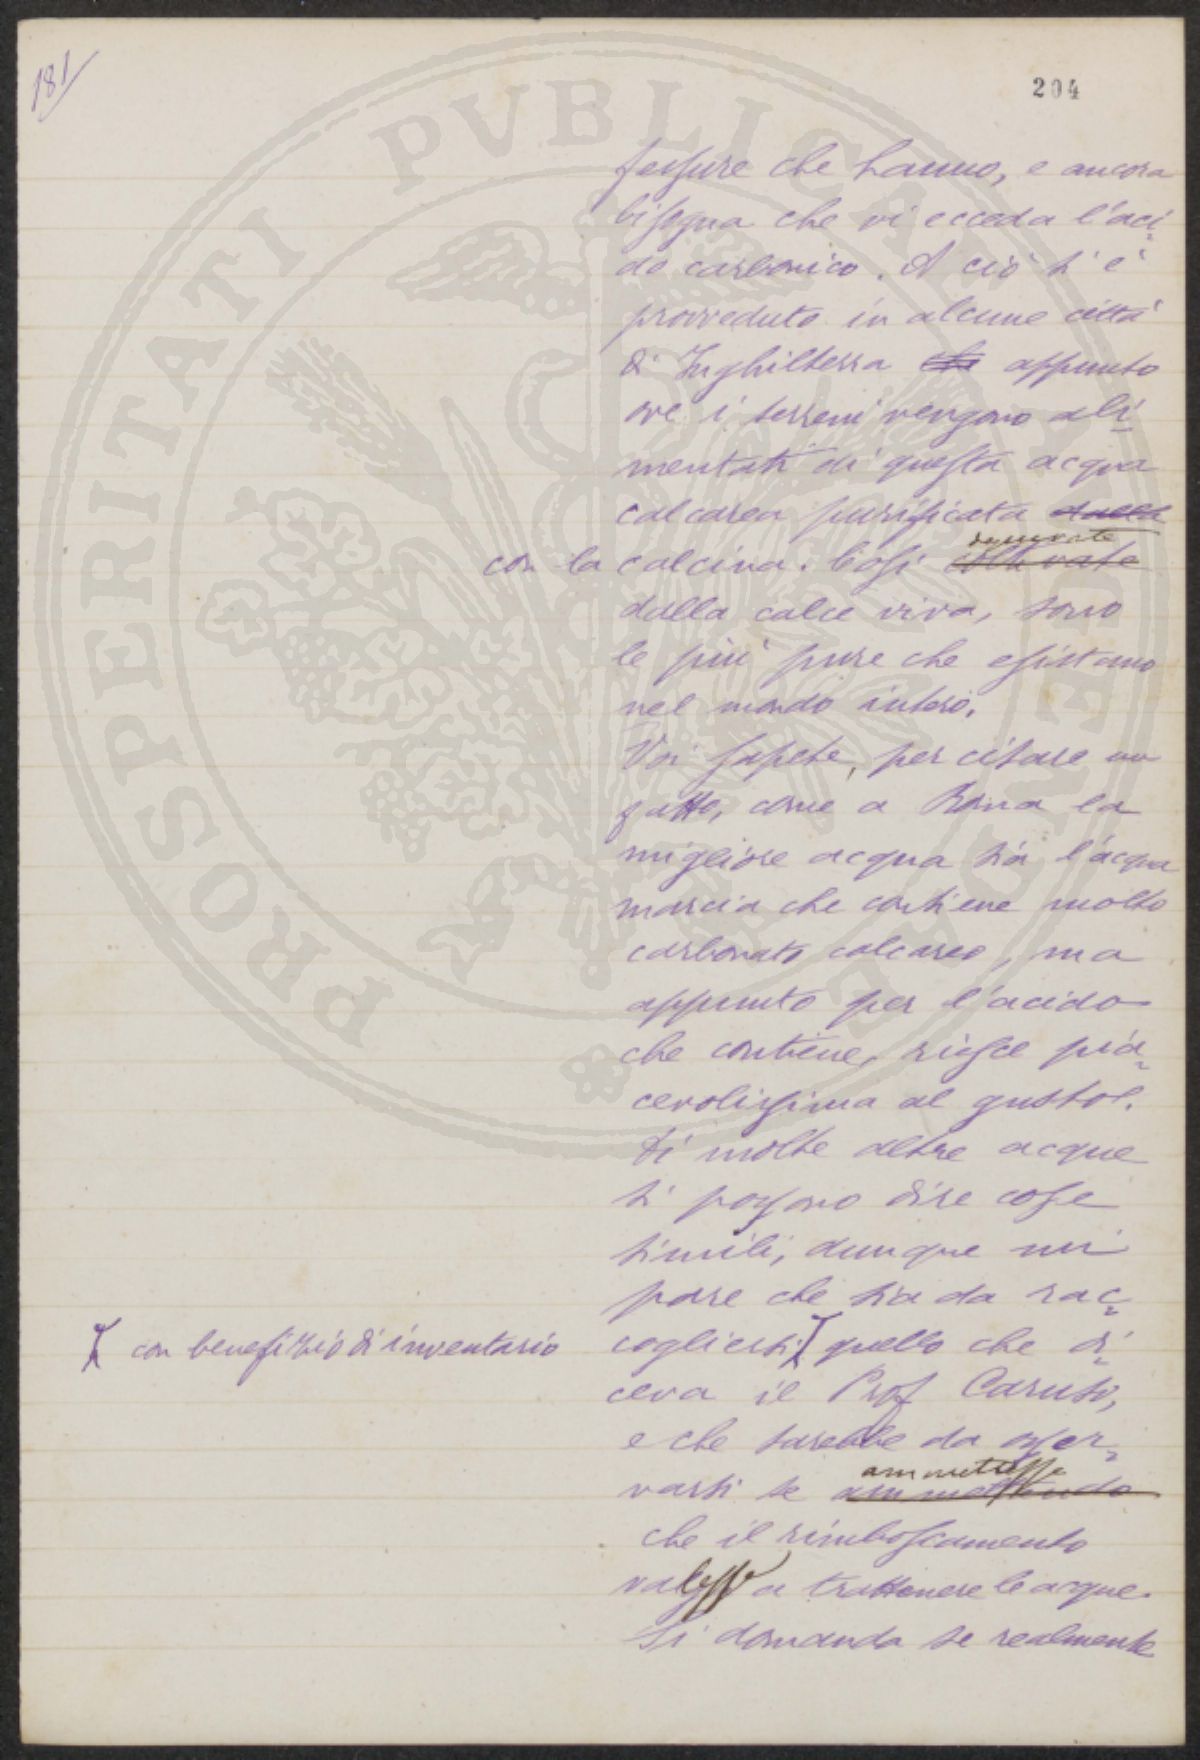 181
204
PROSPERITATI PUBLICAE AUGENDAE
fessure che hanno, e ancora
bisogna che vi ecceda l'aci
do carbonico. A ciò si è
provveduto in alcune città
di Inghilterra che appunto
ove i terreni vengono ali
mentati di questa acqua
calcarea purificata dalla
con la calcina. Così coltivate
depurate
dalla calce viva, sono
le più pure che esistano
nel mondo intero.
Voi sapete, per citare un
fatto, come a Roma la
migliore acqua sia l'acqua
marcia che contiene molto
carbonato calcareo, ma
appunto per l'acido
che contiene, riesce pia
cevolissima al gusto.
Di molte altre acque
si possono dire cose
simili, dunque mi
pare che sia da rac
cogliersi quello che di
con benefizio di inventario
ceva il Prof Caruso,
e che sarebbe da osser
varsi se ammettendo
ammettesse
che il rimboscamento
valesse a trattenere le acque.
Si domanda se realmente